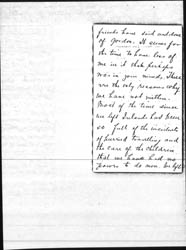 friends have said and done
of Gordon. It seems for
the time to have
me in it that perhaps
was in your minds. These
are the only reasons why
we have not written.
Most of the time since
we left Ireland has been
so full of the incidents
of hurried travelling and
the care of the children
that we have had no
power to do more. We left